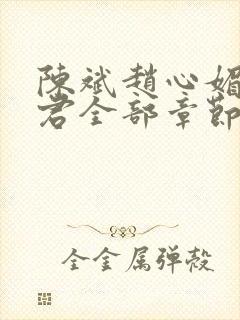 陳斌趙心媚
君全部章節
全金属弹殼